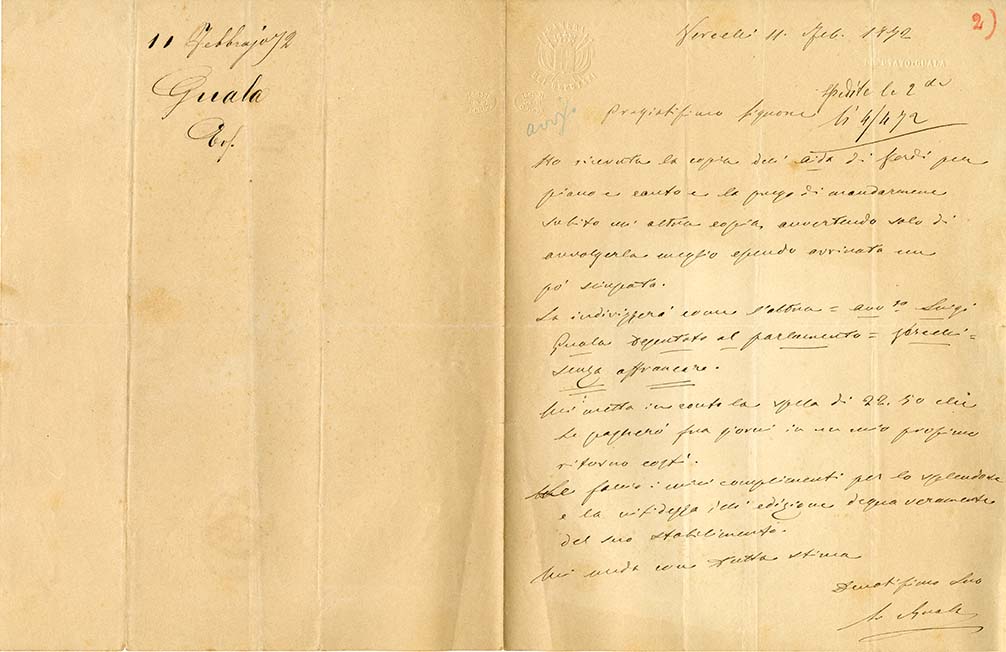 11 Febbrajo 72
Guala
2)
Vercelli 11. Feb. 1872
CAMERA
DEPUTATI
DEPUTATO GUALA
spedite le 2 de
li 4/4 72
Pregiatissimo Signore
Ho ricevuta la copia dell' Aida di Verdi per
piano e canto e la prego di mandarmene
subito un' altra copia, avvertendo solo di
avvolgerla meglio essendo arrivata un
po' sciupata.
La indirizzerà come l'altra = avv to Luigi
Guala Deputato al parlamento = Vercelli =
senza affrancare.
Mi metta in conto la spesa di 22.50 che
Le pagherò fra giorni in un mio prossimo
ritorno costì.
Le faccio i miei complimenti per lo splendore
e la nitidezza di edizione degna veramente
del suo stabilimento.
Mi creda con tutta stima
Devotissimo Suo
L. Guala